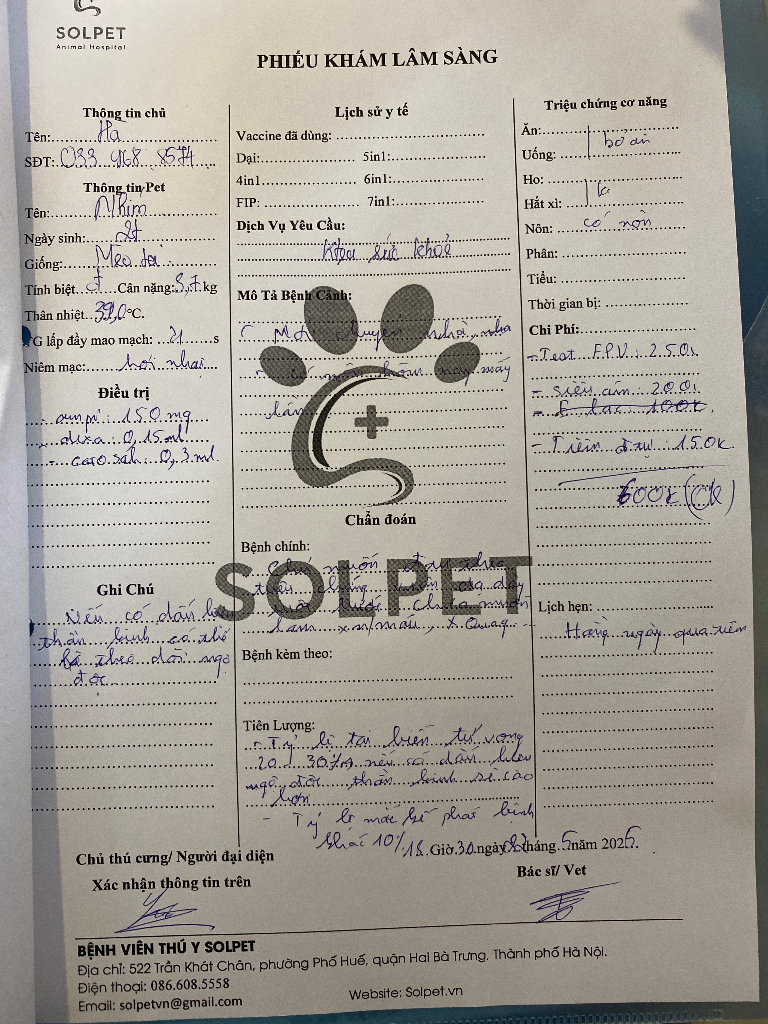 SOLPET
Animal Hospital
PHIẾU KHÁM LÂM SÀNG
Thông tin chủ
Tên: Hà
SĐT: 033 968 8574
Thông tin Pet
Tên: Nhím
Ngày sinh: 2t
Giống: Mèo ta
Tính biệt: Cân nặng: 3,7 kg
Thân nhiệt 39,0 °C.
TG lấp đầy mao mạch: 21 s
Niêm mạc: hơi nhạt
Điều trị
ampi: 150 mg
- dexa: 0,15ml
- catosal: 0,3 ml
Ghi Chú
Nếu có dấu
thần kinh có thể
theo dõi ngộ
độc
Lịch sử y tế
Vaccine đã dùng:
Dại: 5in1:
4in1 6in1:
FIP: 7in1:
Dịch Vụ Yêu Cầu:
Khám sức khoẻ
Mô Tả Bệnh Cảnh:
chuyển nhà, nhà
có nôn hôm nay mấy
lần
Chẩn đoán
Bệnh chính:
Chủ muốn theo
triệu chứng, viêm dạ dày
trước chưa muốn
làm xn máu, XQuang
Bệnh kèm theo:
Tiên Lượng:
- Tỷ lệ tai biến tử vong
20 - 30% nếu có dấu hiệu
ngộ độc thần kinh sẽ cao
hơn
- Tỷ lệ mắc kế phát bệnh
khác 10%
Triệu chứng cơ năng
Ăn:
Uống: bỏ ăn
Ho:
Hắt xì: k
Nôn: có nôn
Phân:
Tiểu:
Thời gian bị:
Chi Phí:
- Test FPV: 250k
- siêu âm: 200k
100k
- Tiêm trị: 150k
600k (CK)
Lịch hẹn:
Hàng ngày qua tiêm
18 Giờ 30 ngày tháng 5 năm 2025
Chủ thú cưng/ Người đại diện
Xác nhận thông tin trên
Bác sĩ/ Vet
SOLPET
BỆNH VIÊN THÚ Y SOLPET
Địa chỉ: 522 Trần Khát Chân, phường Phố Huế, quận Hai Bà Trưng, Thành phố Hà Nội.
Điện thoại: 086.608.5558
Email: solpetvn@gmail.com
Website: Solpet.vn